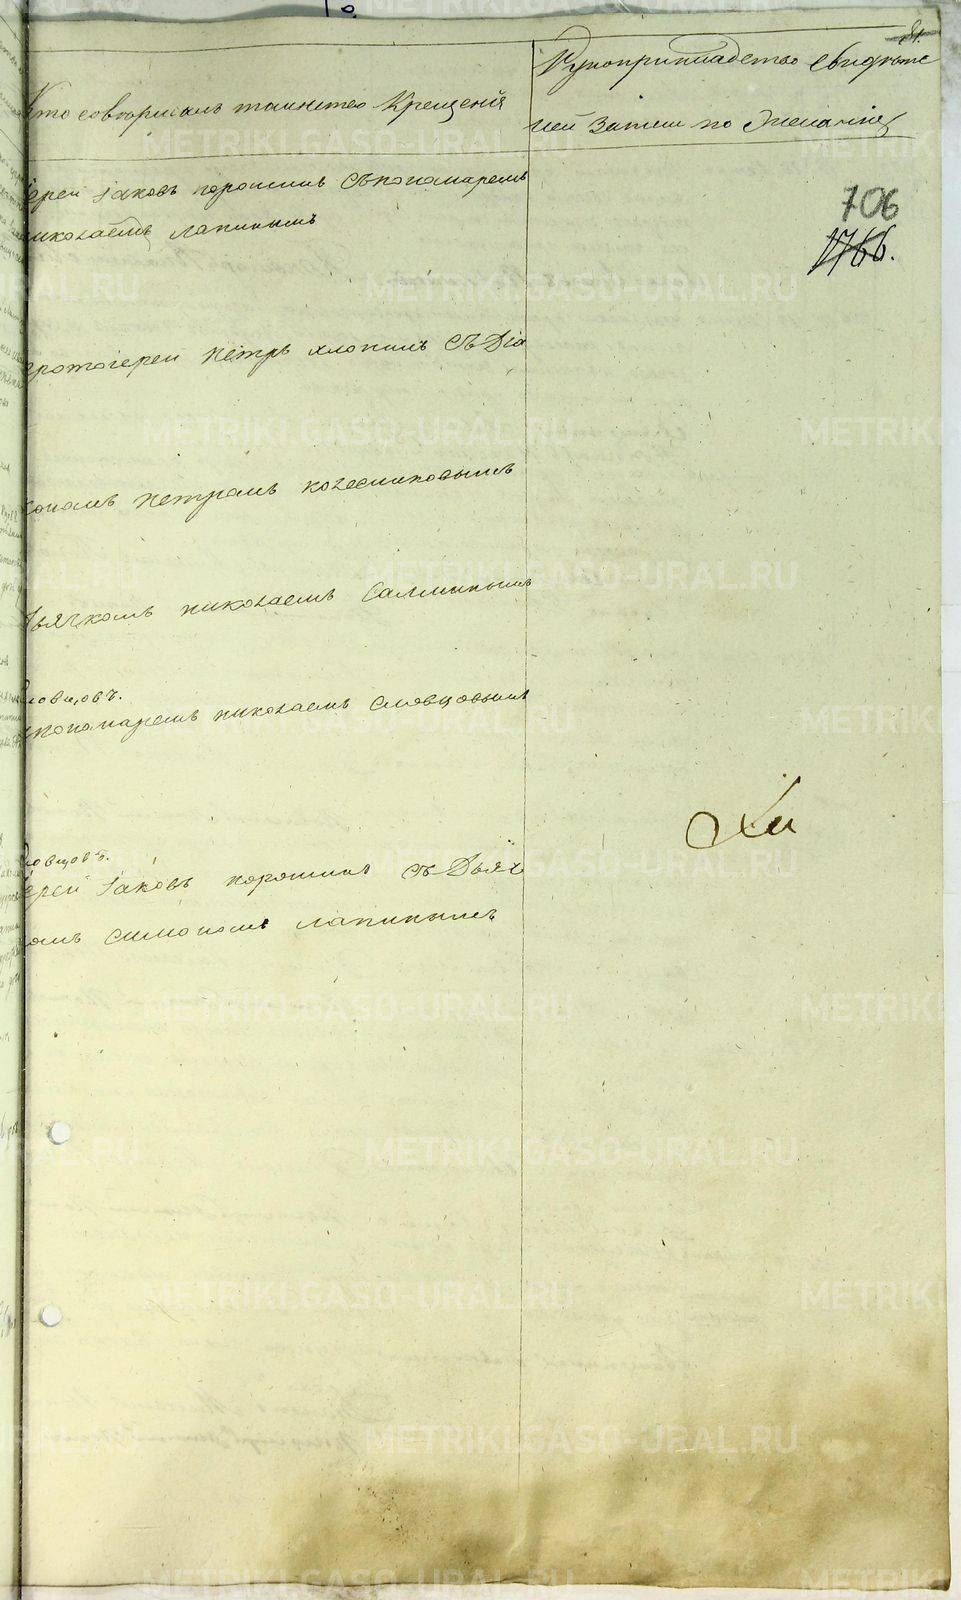 81.
Кто совершалъ таинство Крещенія
Рукоприкладство свидѣте
лей записи по желанію
706
1766.
Іерей Іаковъ порошинъ съпономаремъ
николаемъ лапинымъ
протоіерей Петръ хлопинъ съ Діа
кономъ Петромъ колесниковымъ
Дьячкомъ николаемъ
словцовъ.
пономаремъ николаемъ словцовымъ
словцовъ.
Іерей Іаковъ порошинъ съ Дьяч
комъ симономъ лапинымъ
METRIKI.GASO-URAL.RU